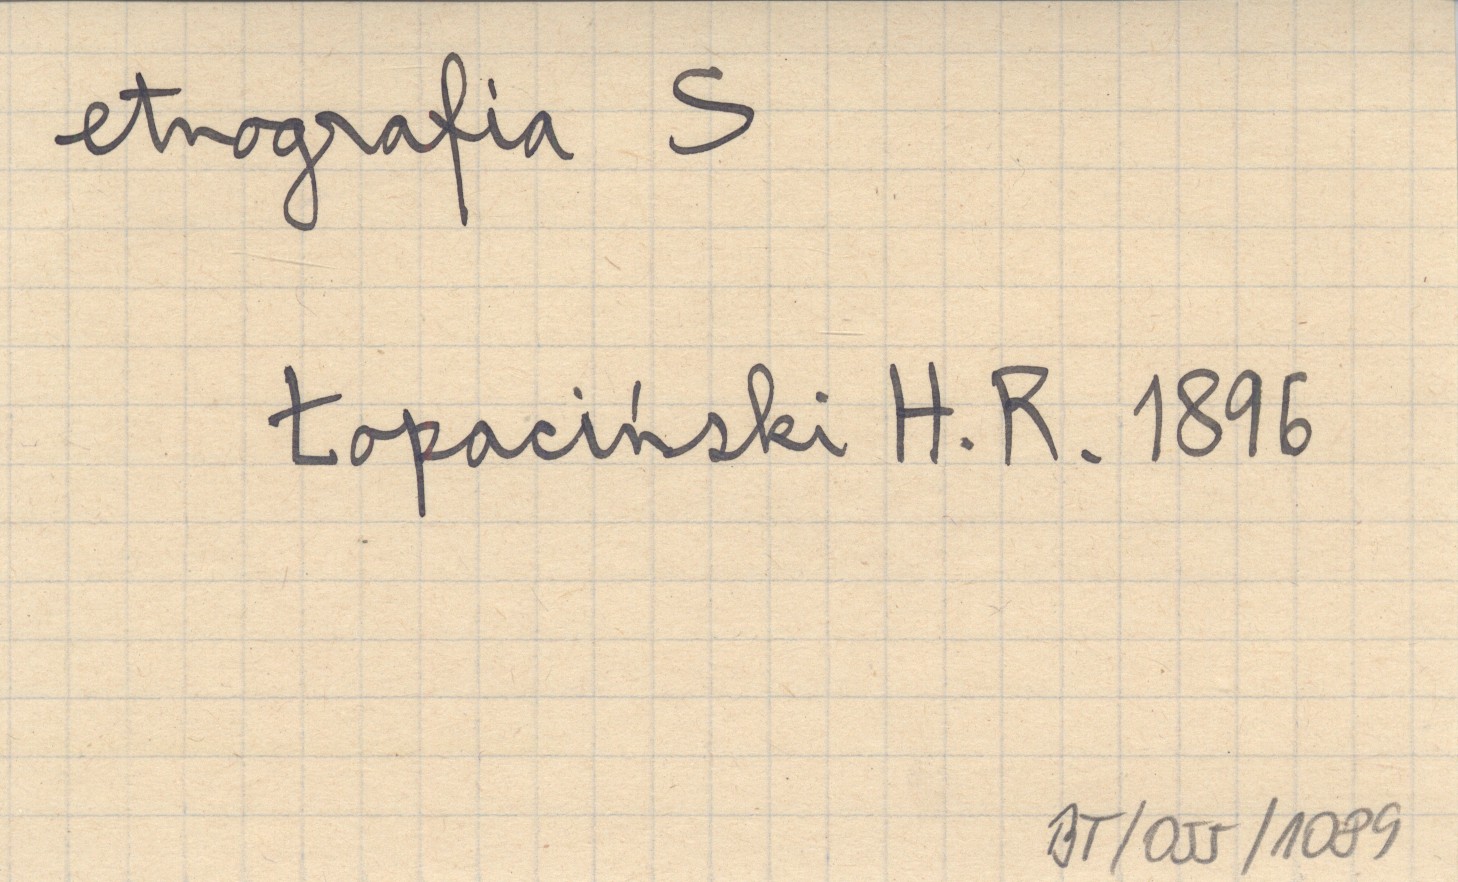 etnografia S
Łopaciński H. R. 1896
BT/055/1089